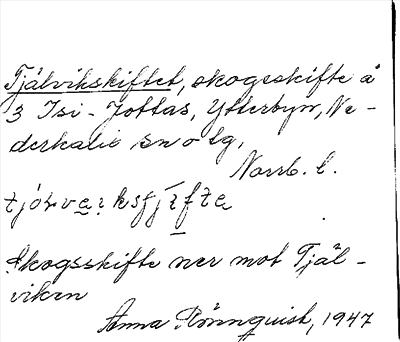 Tjälvikskiftet, skogsskifte å
3 Isi-Jottas, Ytterbyn, Ne-
derkalix sn o tg,
Norrb. l.
Skogsskifte ner mot Tjäl-
viken
Anna Rönnquist, 1947